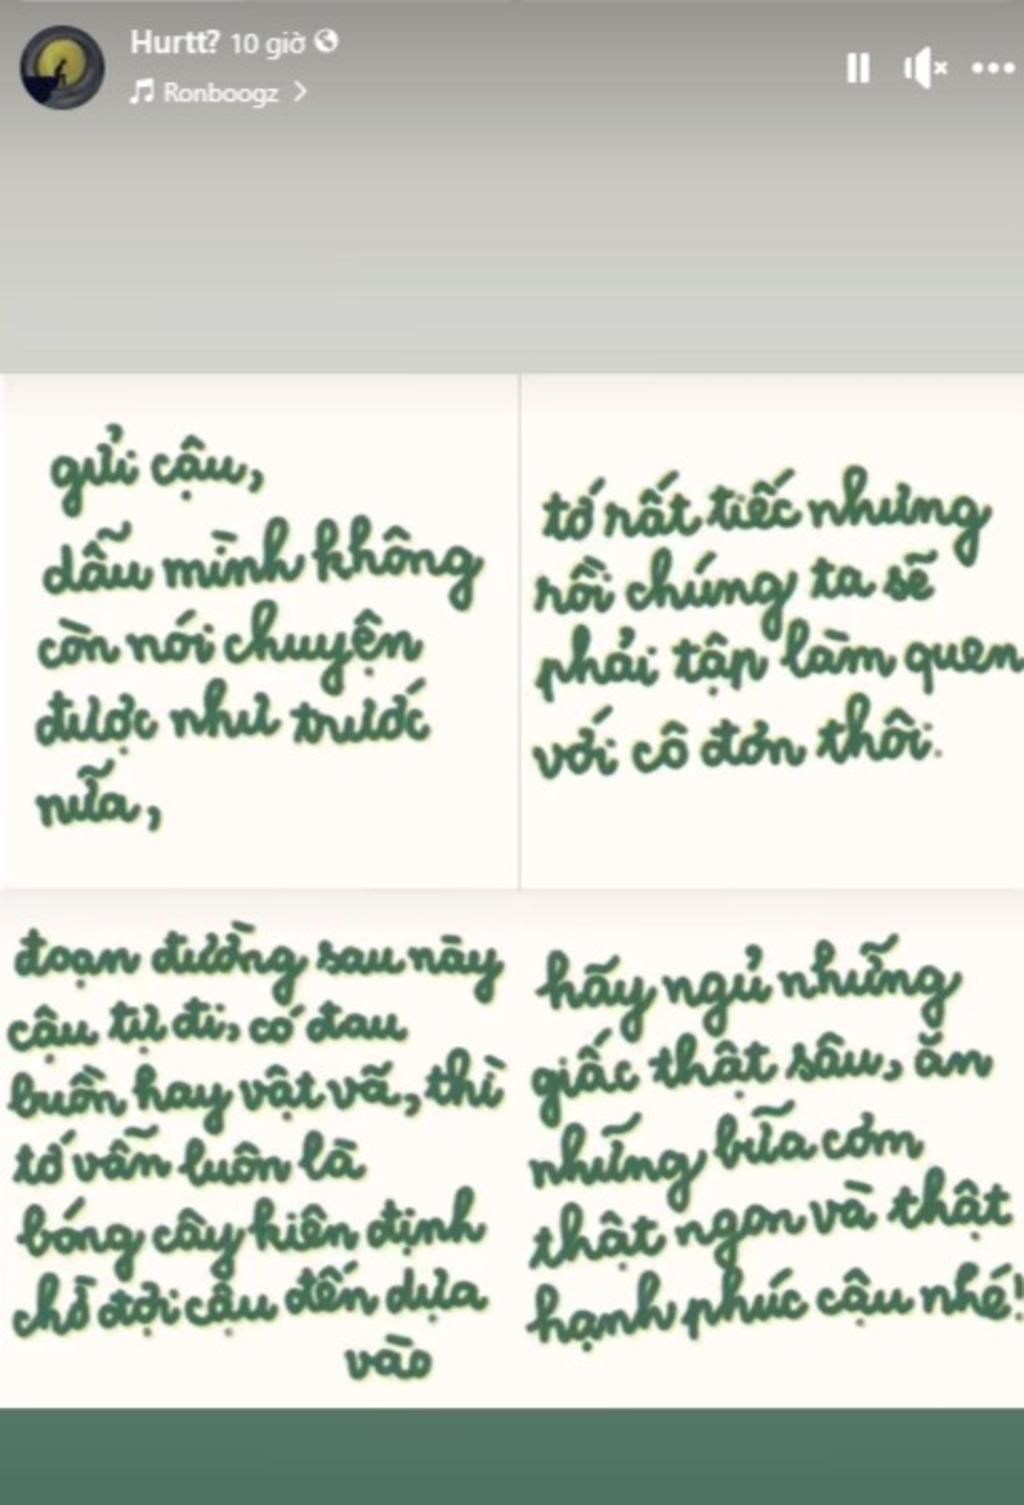 Hurtt? 10 giờ
Ronboogz
gửi cậu,
dẫu mình không
còn nói chuyện
được như trước
nữa,
tớ rất tiếc nhưng
rồi chúng ta sẽ
phải tập làm quen
với cô đơn thôi.
đoạn đường sau này
cậu tự đi, có đau
buồn hay vật vã, thì
tớ vẫn luôn là
bóng cây kiên định
chờ đợi cậu đến dựa
vào
hãy ngủ những
giấc thật sâu, ăn
những bữa cơm
thật ngon và thật
hạnh phúc cậu nhé!